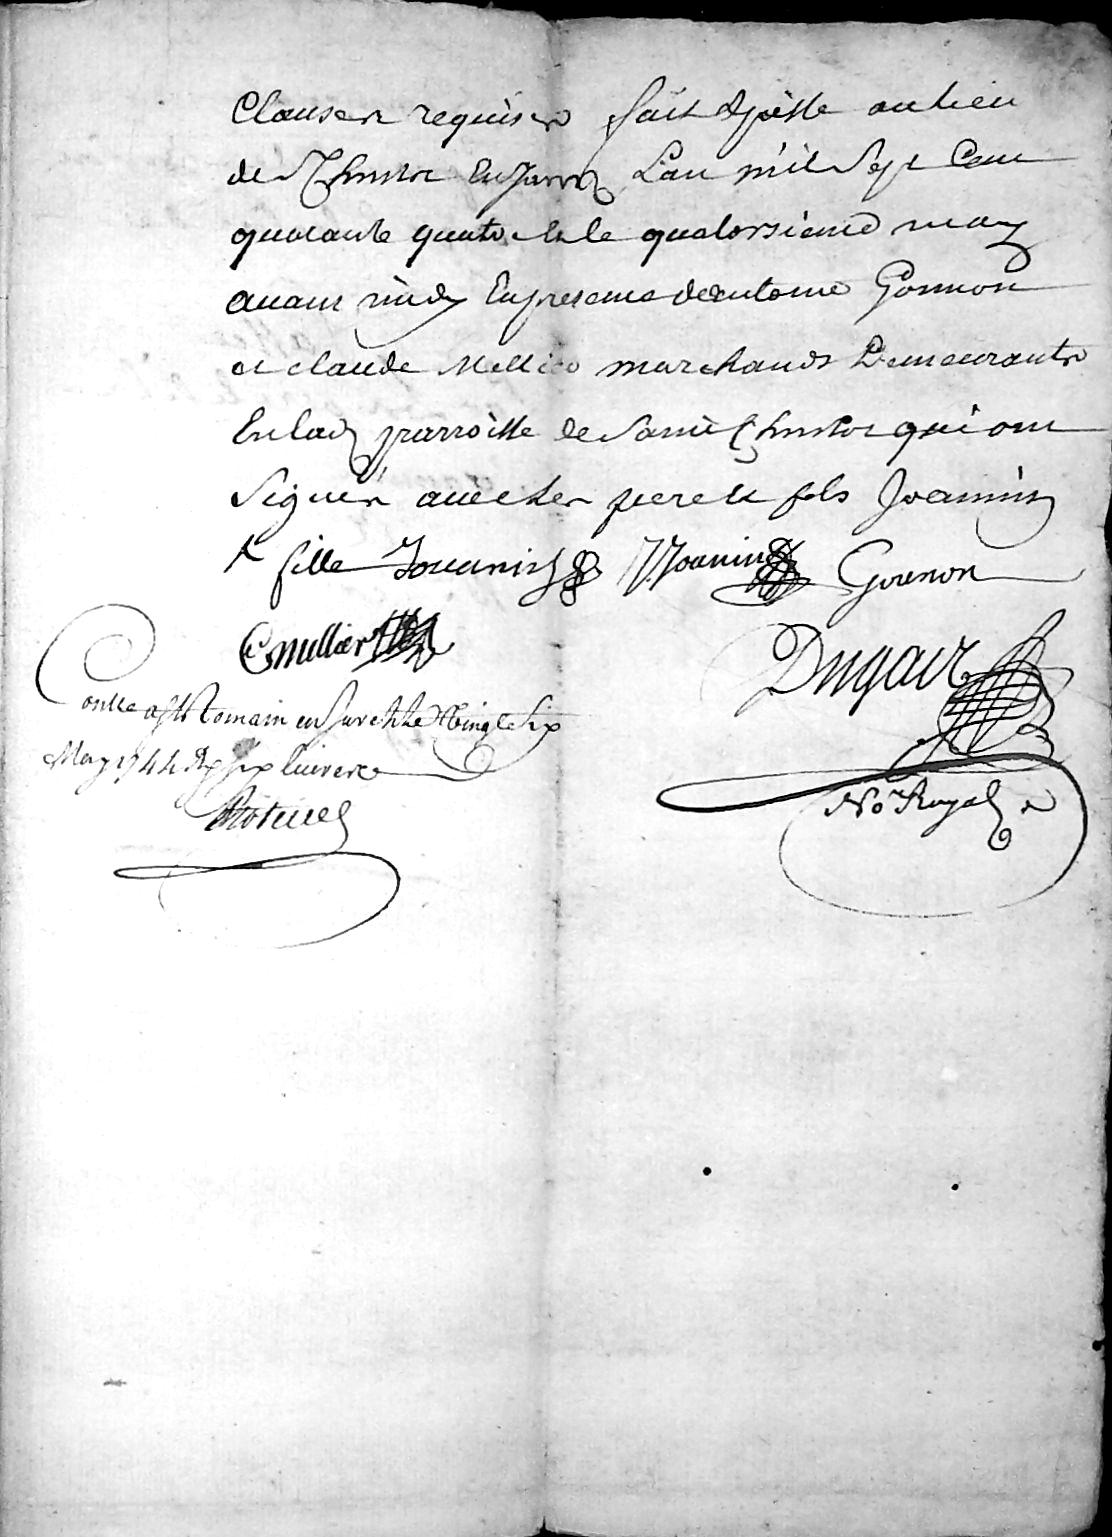 Clauses requises fait & passé au lieu
de St Christot En Jarretz L'an mil Sept Cent
quarante quatre & le quatorsieme may
avant midy En presence de antoine Gonnon
et claude Mellier marchands Demeurants
En lad parroisse de Saint Christot qui ont
Signés avec les pere & fils Joannin
& fille Jouanin J Joanin Gounon
C mellier Dugair
Contlé a St Romain en Jaretz Le Vingt Six
May 1744 Rx six livres
No Royal